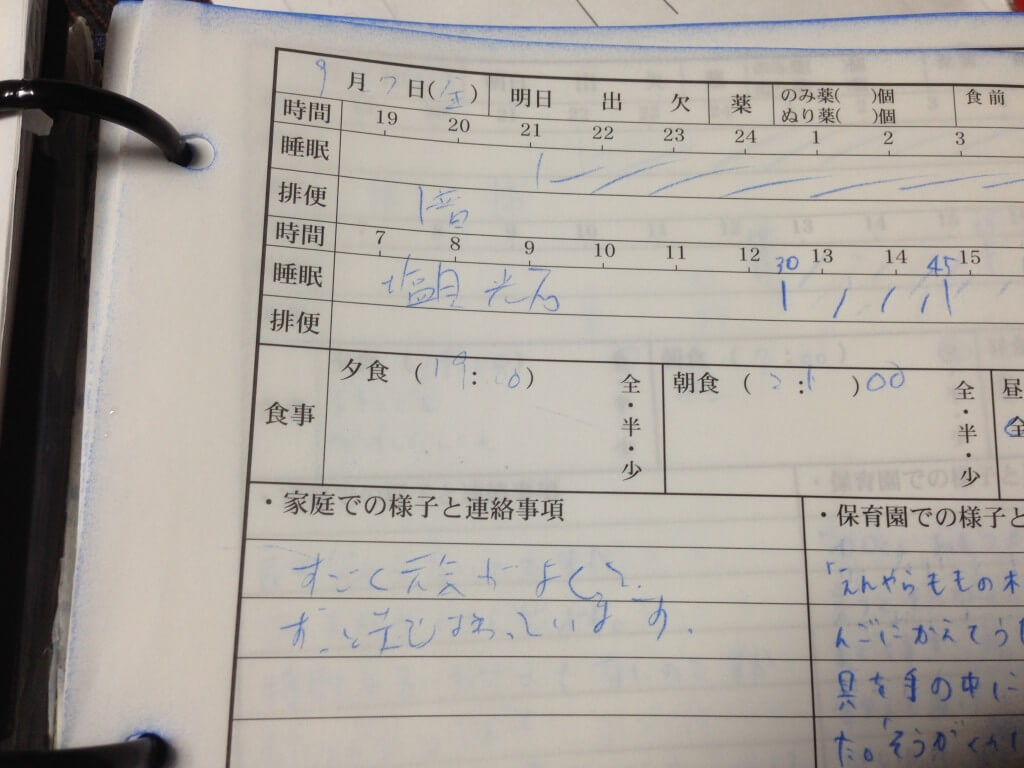 9月7日(金) 明日 出 欠 薬 のみ薬( )個 食前
ぬり薬( )個
時間 19 20 21 22 23 24 1 2 3
睡眠
排便 1普
時間 7 8 9 10 11 12 13 14 15
30 45
睡眠
排便
食事 夕食 (19:00) 全・半・少 朝食 ( : )00 全・半・少 昼
全
・家庭での様子と連絡事項 ・保育園での様子と
すごく元気がよくて、 「えんやらももの木
ずっと走りまわっています。 んごにかえてう
具を手の中に
た。「そうが